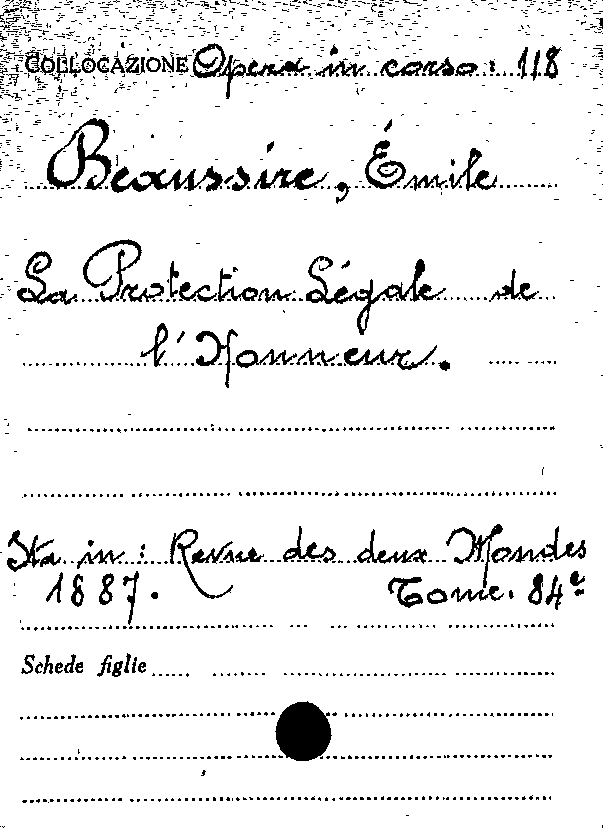 COLLOCAZIONE Opera in corso: 118
Beaussire, Émile
La Protection Légale de
l'Honneur.
Sta in: Revue des deux Mondes
1887. Tome. 84e
Schede figlie